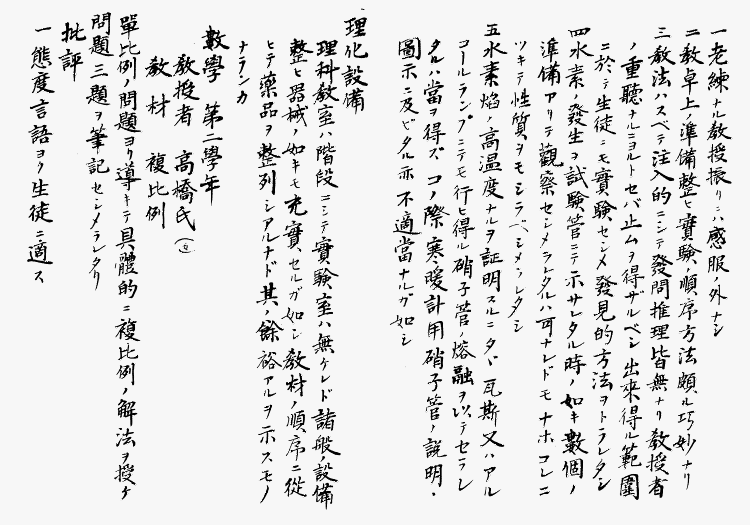 一老練ナル教授振リニハ感服ノ外ナシ
二教卓上ノ準備整ヒ實験ノ順序方法頗ル巧妙ナリ
三教法ハスベテ注入的ニシテ發問推理皆無ナリ教授者
ノ重聽ナルニヨルトセバ止ムヲ得ザルベシ出來得ル範圍
ニ於テ生徒ニモ實験セシメ發見的方法ヲトラレタシ
四水素ノ發生ヲ試験管ニテ示サレタル時ノ如キ數個ノ
準備アリテ觀察セシメラレタルハ可ナレドモナホコレニ
ツキテ性質ヲモシラベシメラレタシ
五水素焔ノ高温度ナルヲ証明スルニタヾ瓦斯又ハアル
コールランプニテモ行ヒ得ル硝子管ノ熔融ヲ以テセラレ
タルハ當ヲ得ズコノ際寒暖計用硝子管ノ説明・
圖示ニ及ビタルホ不適當ナルガ如シ
理化設備
理科教室ハ階段ニシテ實験室ハ無ケレド諸般ノ設備
整ヒ器械ノ如キモ充實セルガ如シ教材ノ順序ニ從
ヒテ藥品ヲ整列シアルナド其ノ餘裕アルヲ示スモノ
ナランカ
數學 第二學年
教授者 高橋氏
教材 複比例
單比例ノ問題ヨリ導キテ具體的ニ複比例ノ解法ヲ授ケ
問題三題ヲ筆記セシメラレタリ
批評
一態度言語ヨク生徒ニ適ス